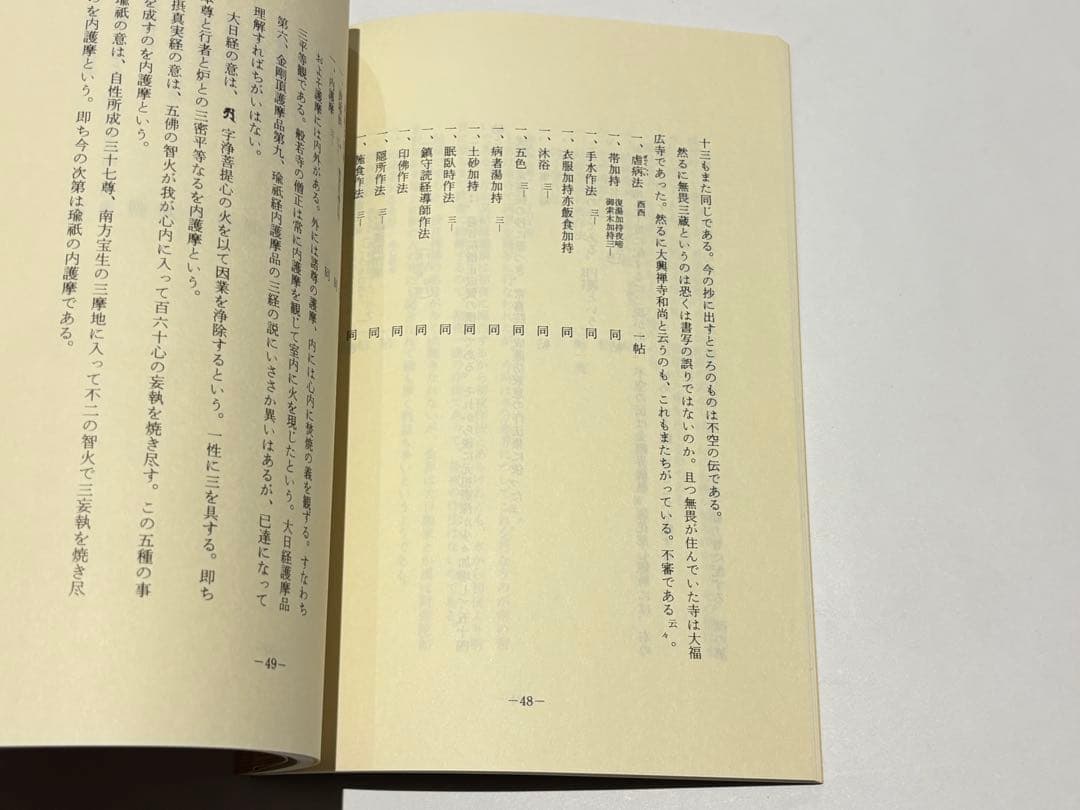 十三もまた同じである。今の抄に出すところのものは不空の伝である。
然るに無畏三蔵というのは恐くは書写の誤りではないのか。且つ無畏が住んでいた寺は大福
広寺であった。然るに大興禅寺和尚と云うのも、これもまたちがっている。不審である云々。
一、瘧病法 酉酉 一帖
一、帯加持 御索木加持三— 同
一、手水作法 三— 同
一、衣服加持亦飯食加持 同
一、沐浴 三— 同
一、五色 三— 同
一、病者湯加持 三— 同
一、土砂加持 同
一、眠臥時作法 三— 同
一、鎮守読経導師作法 同
一、印佛作法 同
一、隠所作法 三— 同
一、施食作法 三— 同
—48—
一、内護摩 三
およそ護摩には内外がある。外には諸尊の護摩、内には心内に焚焼の義を観ずる。すなわち
三平等観である。般若寺の僧正は常に内護摩を観じて室内に火を現じたという。大日経護摩品
第六、金剛頂護摩品第九、瑜祇経内護摩品の三経の説にいささか異いはあるが、已達になって
理解すればちがいはない。
大日経の意は、字浄菩提心の火を以て因業を浄除するという。一性に三を具する。即ち
尊と行者と炉との三密平等なるを内護摩という。
摂真実経の意は、五佛の智火が我が心内に入って百六十心の妄執を焼き尽す。この五種の事
を成すのを内護摩という。
瑜祇の意は、自性所成の三十七尊、南方宝生の三摩地に入って不二の智火で三妄執を焼き尽
を内護摩という。即ち今の次第は瑜祇の内護摩である。
—49—